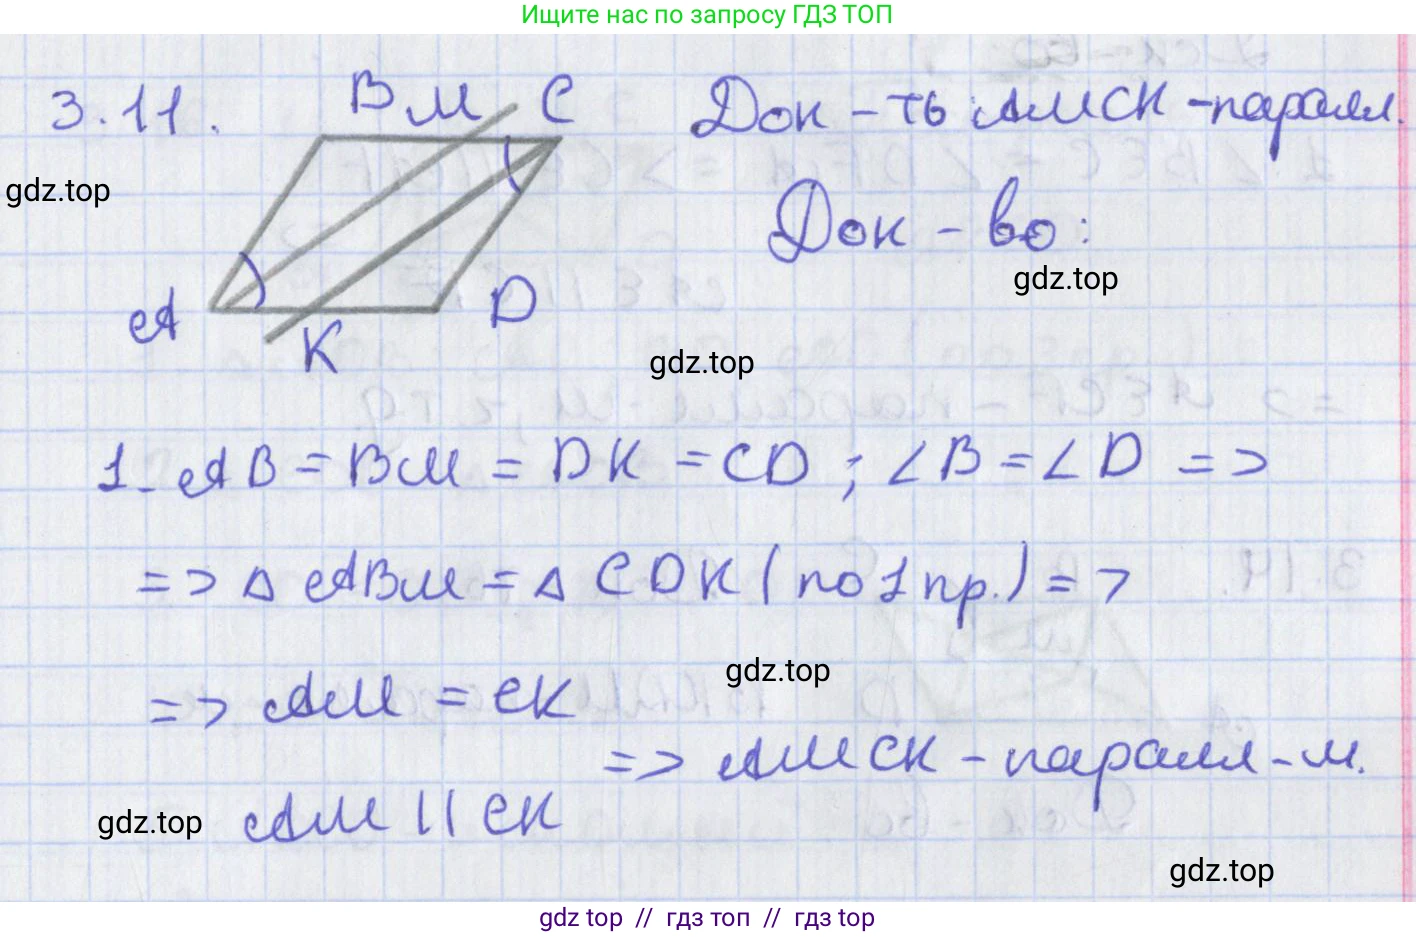 Ищите нас по запросу ГДЗ ТОП
3.11.
B M C
A K D
Док-ть: AMCK - паралл.
gdz.top
Док-во:
gdz.top
gdz.top
1. AB = BM = DK = CD; ∠B = ∠D =>
=> Δ ABM = Δ CDK (по 1 пр.) =>
gdz.top
=> AM = CK
=> AMCK - паралл-м.
gdz.top
AM || CK
gdz.top
gdz top // гдз топ // гдз top